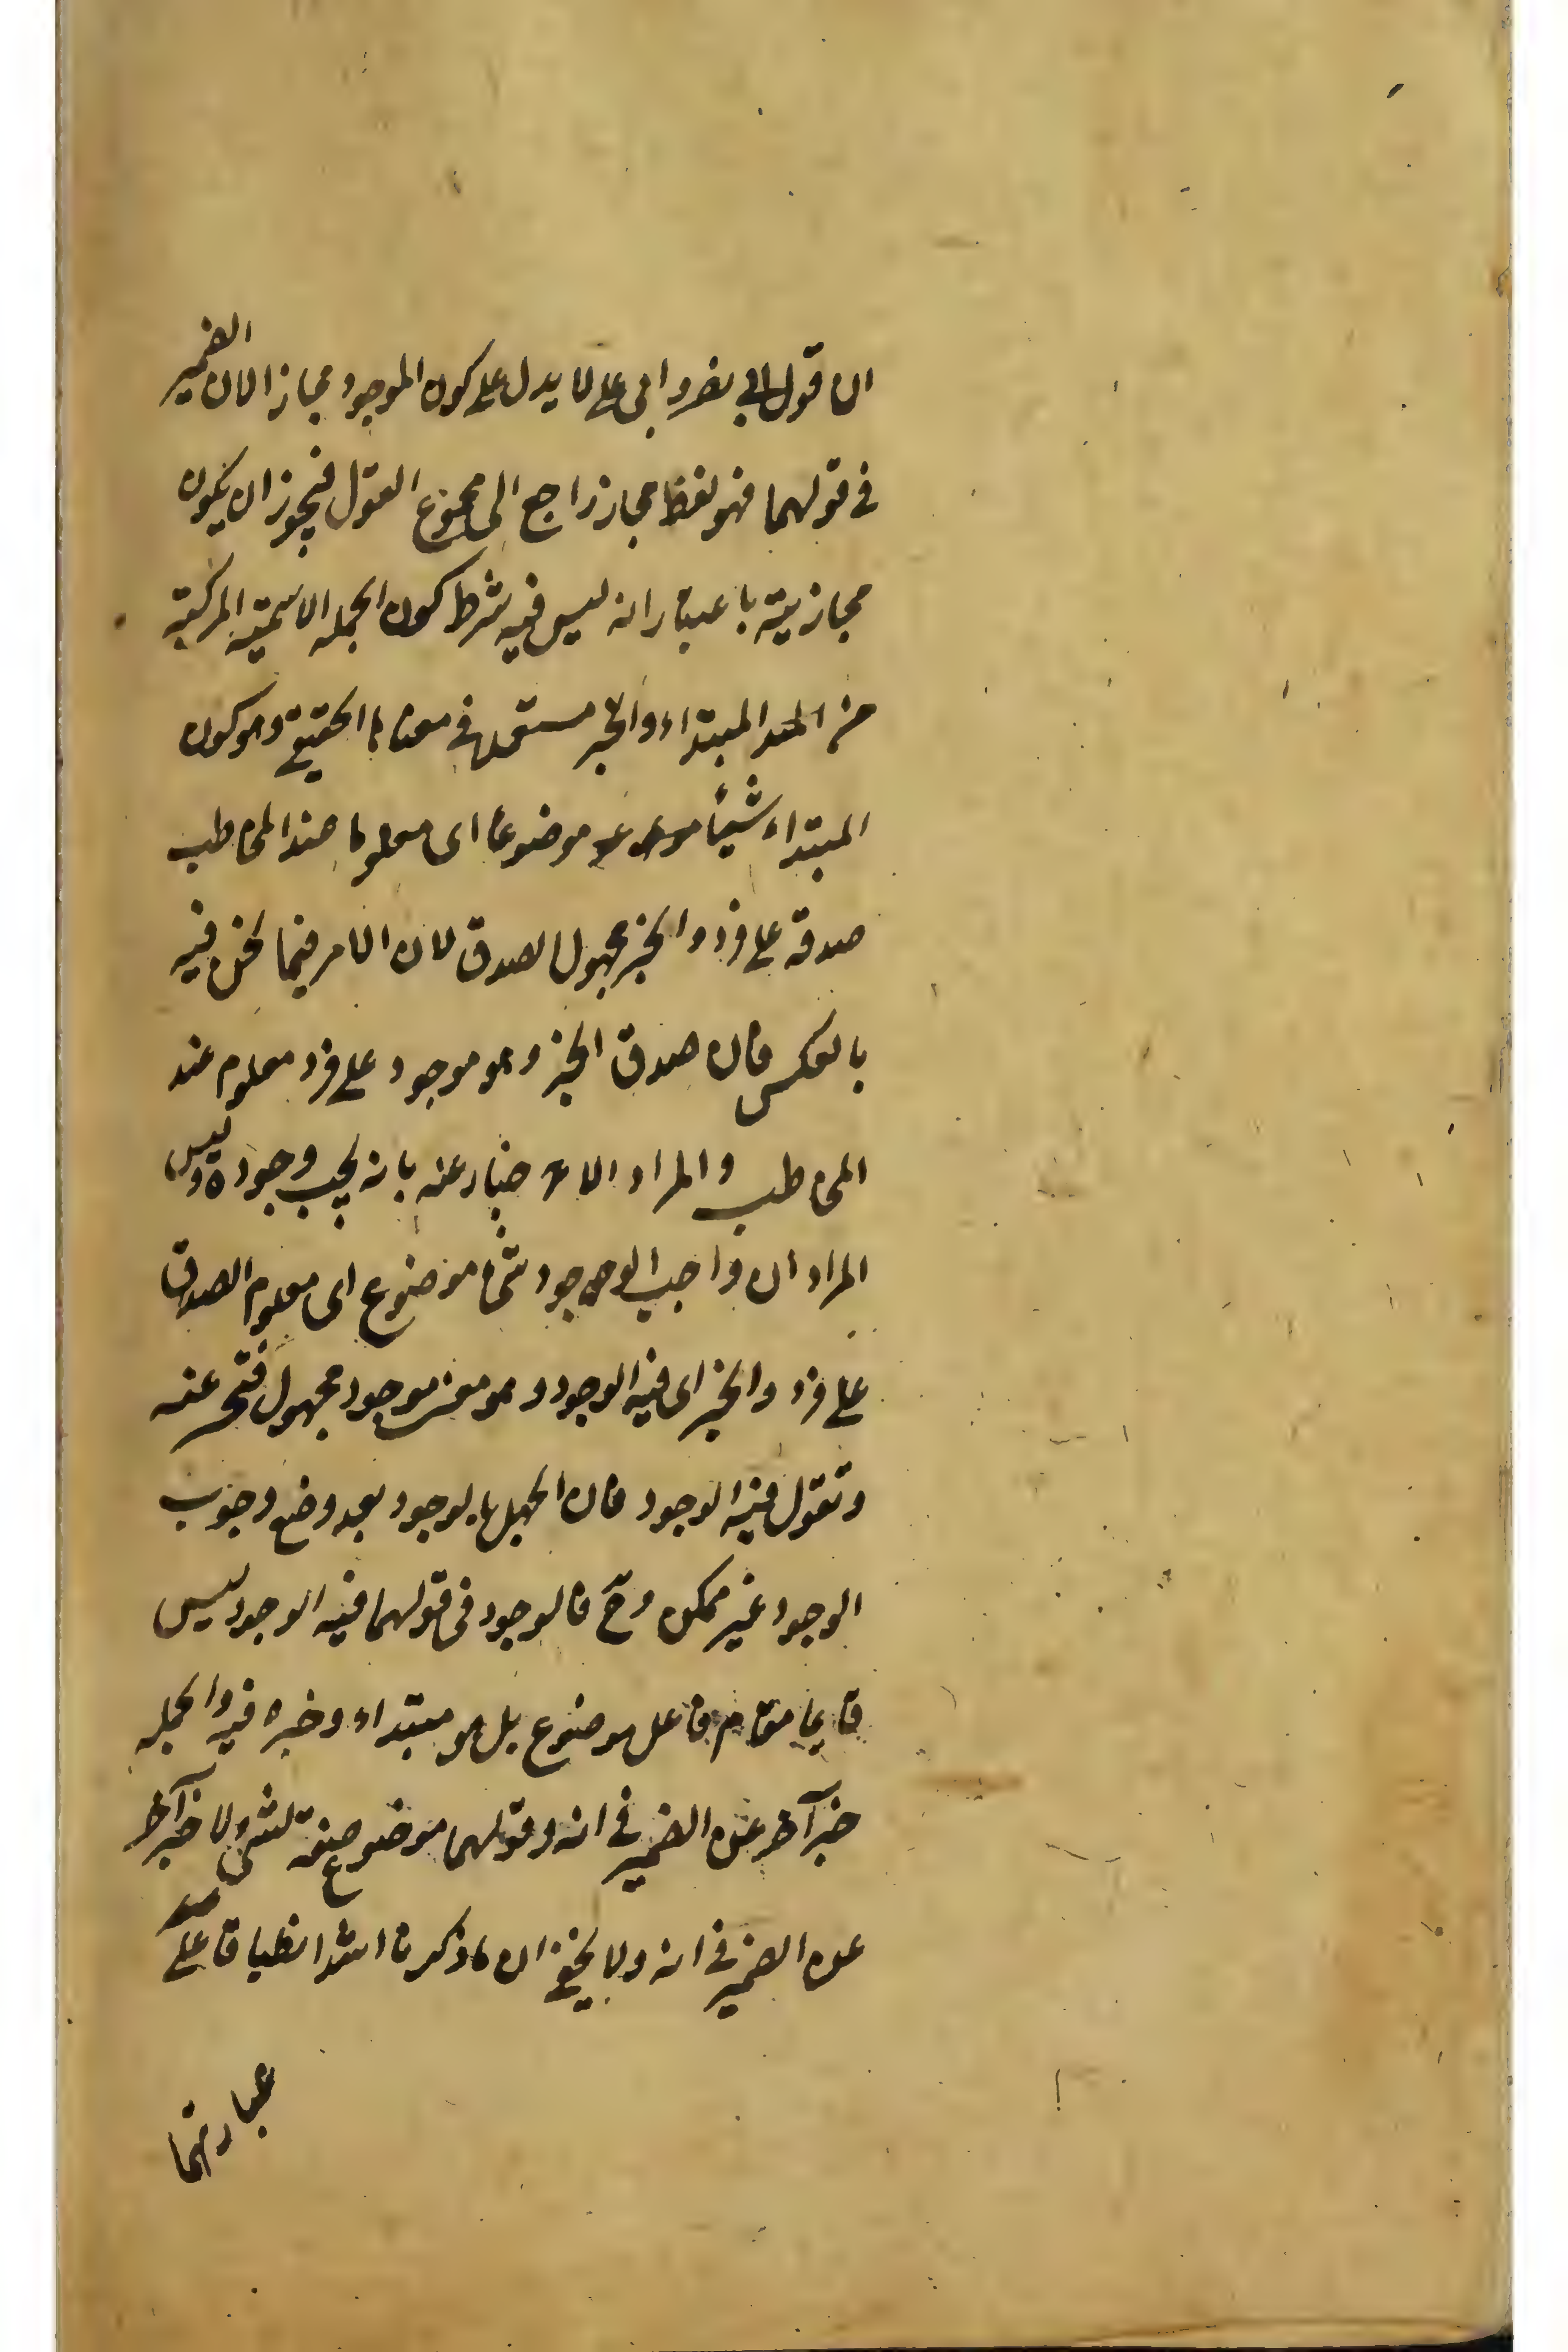 ان قول ابى نصر وابى على لا يدل على كون الموجود مجازا لان الضمير
فى قولهما فهو لفظ مجاز راجع الى مجموع القول فيجوز ان يكون
مجازيته باعتبار انه ليس فيه شرط كون الجمله الاسميّة المركبة
من المبتداء والخبر مستعملة فى معناها الحقيقى وهو كون
المبتداء شيئا موضوعا اى معلوما عند المخاطب
صدقه على فرد والخبر مجهول الصدق لان الامر فيما نحن فيه
بالعكس فان صدق الخبر وهو موجود على فرد معلوم عند
المخاطب والمراد الاخبار عنه بانه يجب وجوده وليس
المراد ان واجب الوجود شئ موضوع اى معلوم الصدق
على فرد والخبر اى فيه الوجود وهو معنى موجود مجهول فتخبر عنه
وتقول فيه الوجود فان الجهل بالوجود بعد وضع وجوب
الوجود غير ممكن وح فالوجود فى قولهما فيه الوجود ليس
قايما مقام فاعل موضوع بل هو مبتداء وخبره فيه والجمله
خبر آخر عن الضمير فى انه وقولهما موضوع صفة لشئ لا خبر آخر
عن الضمير فى انه ولا يخفى ان ما ذكرنا اشد انطباقا على
عبارتهما